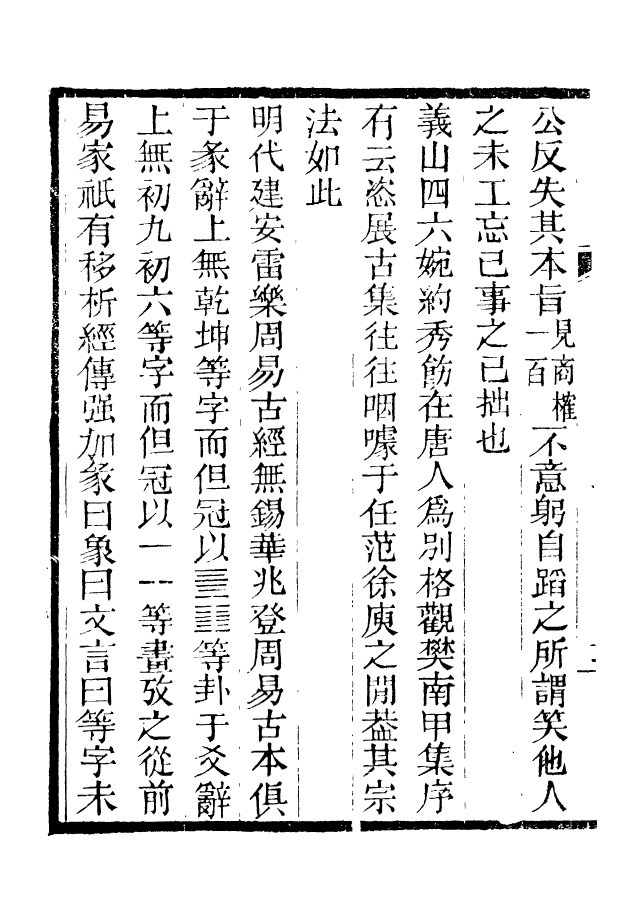 公反失其本旨見商榷一百不意躬自蹈之所謂笑他人
之未工忘己事之已拙也
義山四六婉約秀飭在唐人爲別格觀樊南甲集序
有云恣展古集往往咽噱于任范徐庾之閒葢其宗
法如此
明代建安雷樂周易古經無錫華兆登周易古本俱
于彖辭上無乾坤等字而但冠以䷀䷁等卦于爻辭
上無初九初六等字而但冠以⚊⚋等畫攷之從前
易家祇有移析經傳强加彖曰象曰文言曰等字未